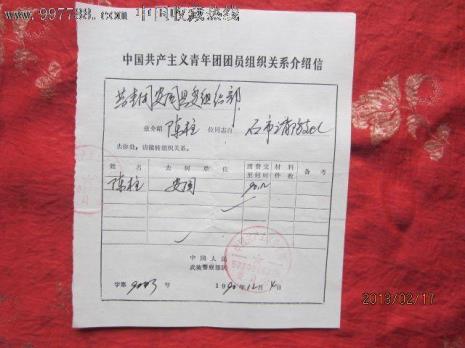 www.997788.com 中国收藏热线
中国共产主义青年团团员组织关系介绍信
共青团安国县委组织部
兹介绍 陈柱 位同志自 石市消防
去你处，请接转组织关系。
姓名 去何单位 团费交至何时 材料件数 备考
陈柱 安国 90.12
中国人民
武装警察部队
字第 9003 号 1990年12月4日
2013/02/17